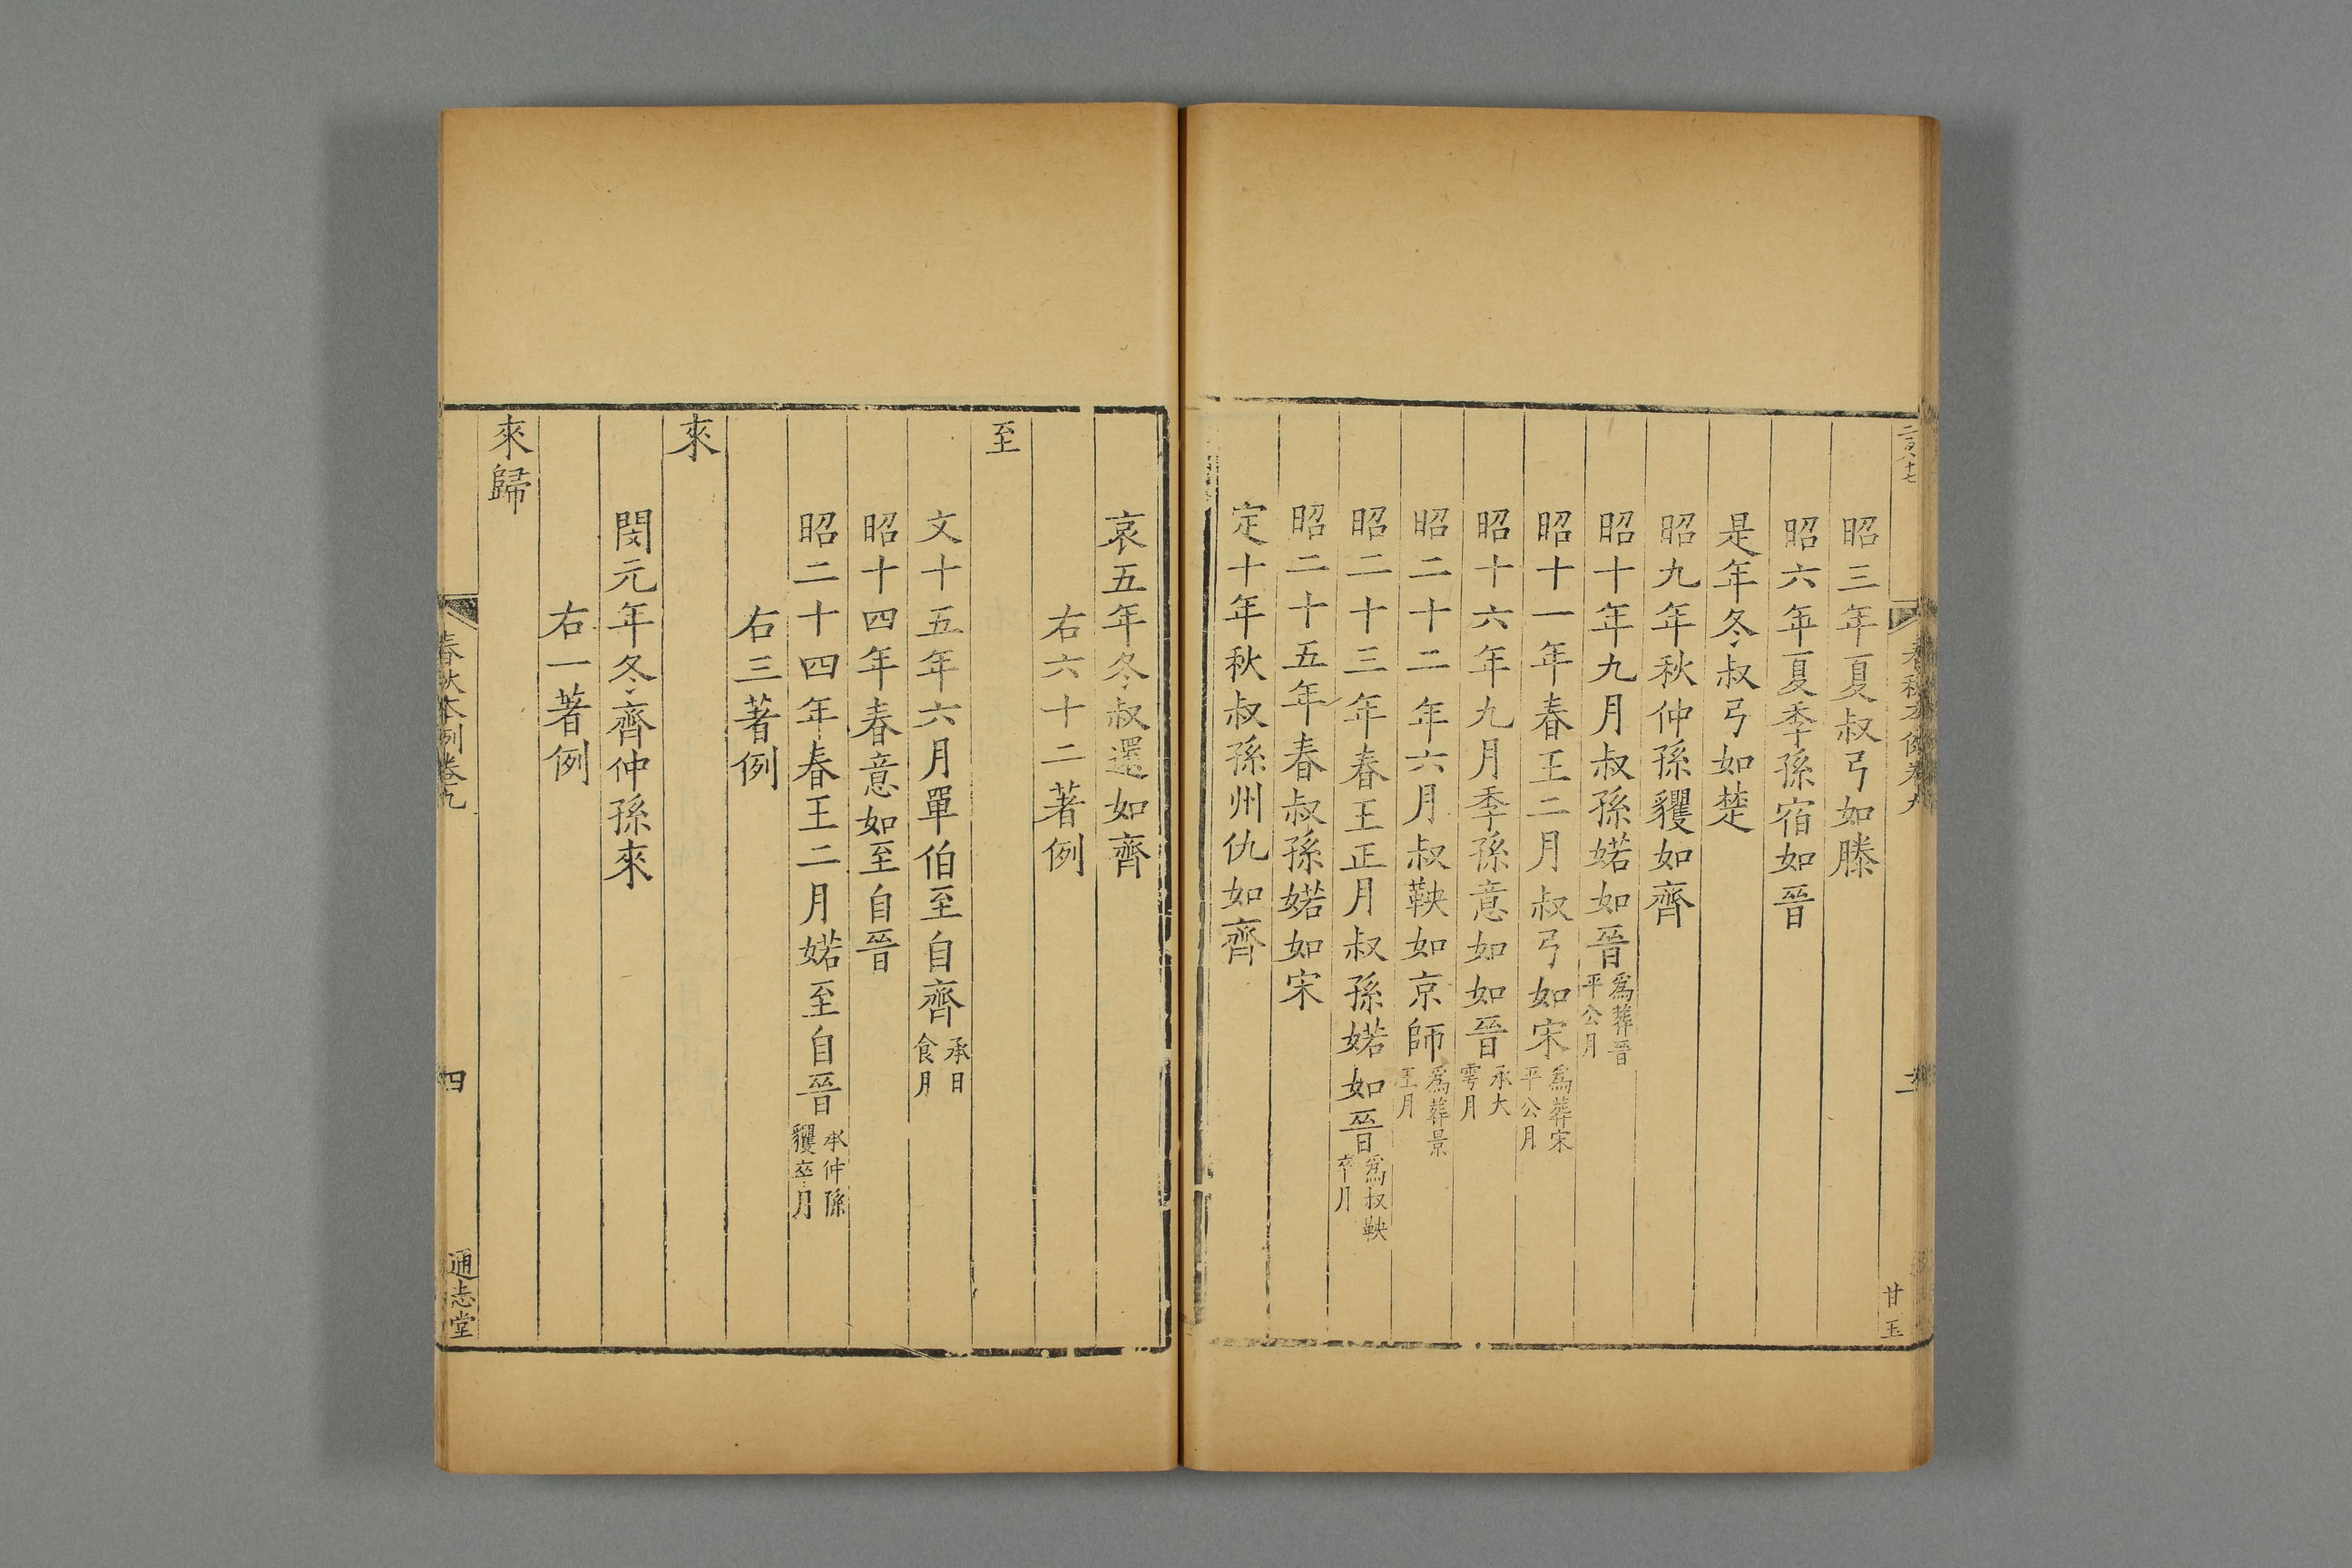 二百八十七
春秋本例卷九
三
甘玉
昭三年夏叔弓如滕
昭六年夏季孫宿如晉
是年冬叔弓如楚
昭九年秋仲孫貜如齊
昭十年九月叔孫婼如晉爲葬晉平公月
昭十一年春王二月叔弓如宋爲葬宋平公月
昭十六年九月季孫意如如晉承大雩月
昭二十二年六月叔鞅如京師爲葬景王月
昭二十三年春王正月叔孫婼如晉爲叔鞅卒月
昭二十五年春叔孫婼如宋
定十年秋叔孫州仇如齊
哀五年冬叔還如齊
右六十二著例
至
文十五年六月單伯至自齊承日食月
昭十四年春意如至自晉
昭二十四年春王二月婼至自晉承仲孫貜卒月
右三著例
來
閔元年冬齊仲孫來
右一著例
來歸
春秋本例卷九
四
通志堂